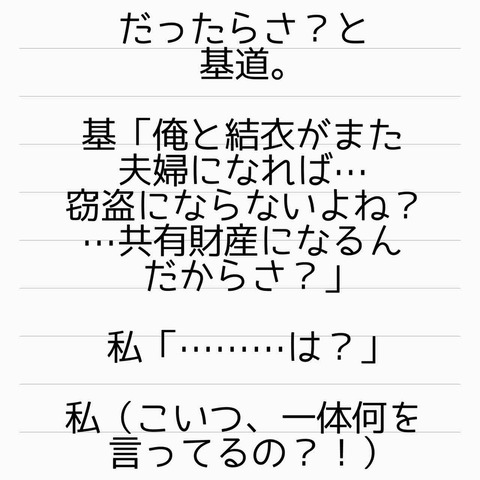 だったらさ？と
基道。
基「俺と結衣がまた
夫婦になれば…
窃盗にならないよね？
…共有財産になるん
だからさ？」
私「………は？」
私（こいつ、一体何を
言ってるの？！）